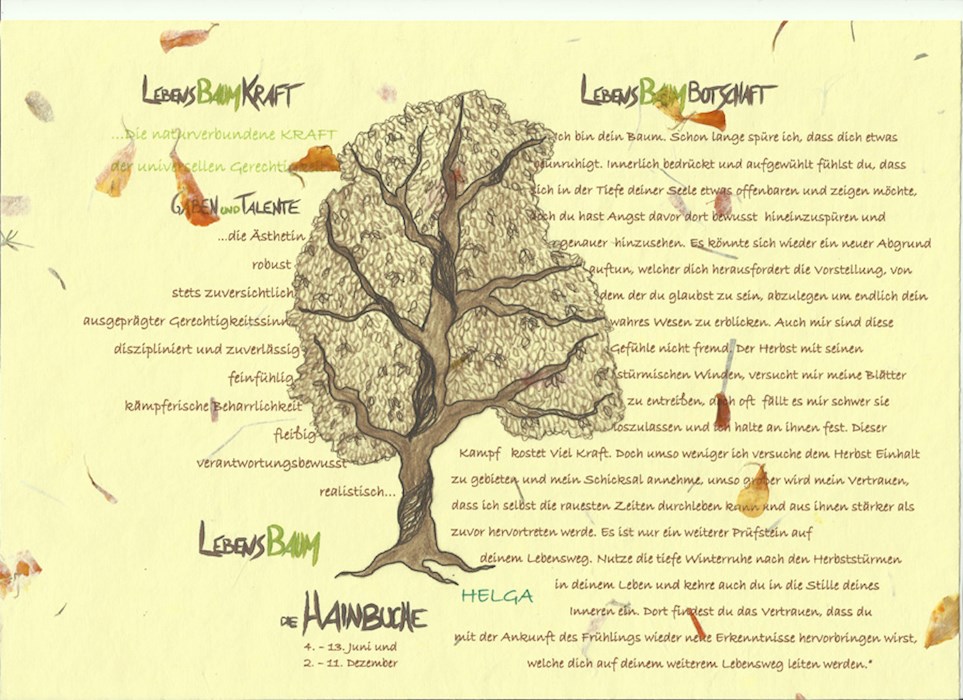 LEBENSBAUMKRAFT
...Die naturverbundene KRAFT
der universellen Gerechtigkeit...
GABEN UND TALENTE
...die Ästhetin
robust
stets zuversichtlich
ausgeprägter Gerechtigkeitssinn
diszipliniert und zuverlässig
feinfühlig
kämpferische Beharrlichkeit
fleißig
verantwortungsbewusst
realistisch...
LEBENSBAUM
DIE HAINBUCHE
4. - 13. Juni und
2. - 11. Dezember
HELGA
LEBENSBAUMBOTSCHAFT
Ich bin dein Baum. Schon lange spüre ich, dass dich etwas
beunruhigt. Innerlich bedrückt und aufgewühlt fühlst du, dass
sich in der Tiefe deiner Seele etwas offenbaren und zeigen möchte,
doch du hast Angst davor dort bewusst hineinzuspüren und
genauer hinzusehen. Es könnte sich wieder ein neuer Abgrund
auftun, welcher dich herausfordert die Vorstellung, von
dem der du glaubst zu sein, abzulegen um endlich dein
wahres Wesen zu erblicken. Auch mir sind diese
Gefühle nicht fremd. Der Herbst mit seinen
stürmischen Winden, versucht mir meine Blätter
zu entreißen, doch oft fällt es mir schwer sie
loszulassen und ich halte an ihnen fest. Dieser
Kampf kostet viel Kraft. Doch umso weniger ich versuche dem Herbst Einhalt
zu gebieten und mein Schicksal annehme, umso größer wird mein Vertrauen,
dass ich selbst die rauesten Zeiten durchleben kann und aus ihnen stärker als
zuvor hervortreten werde. Es ist nur ein weiterer Prüfstein auf
deinem Lebensweg. Nutze die tiefe Winterruhe nach den Herbststürmen
in deinem Leben und kehre auch du in die Stille deines
Inneren ein. Dort findest du das Vertrauen, dass du
mit der Ankunft des Frühlings wieder neue Erkenntnisse hervorbringen wirst,
welche dich auf deinem weiterem Lebensweg leiten werden."